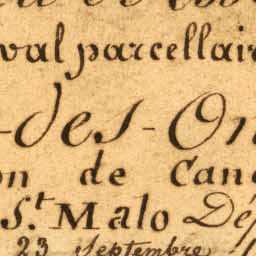 val parcellai
-des-On
on de Canc
St. Malo Dé
23 septembre